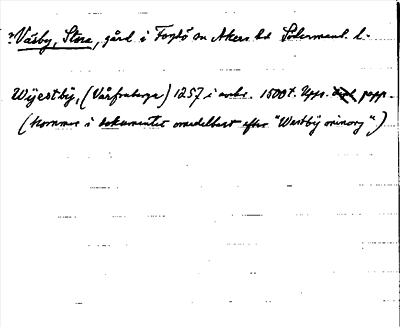 ? Väsby, Stora, gård i Fogdö sn Åkers hd Södermanl. l.
Wÿestbÿ, (Vårfruberga) 1257 i avskr. 1500 t. Upps. papp.
(kommer i dokumentet omedelbart efter "Westbÿ minory")